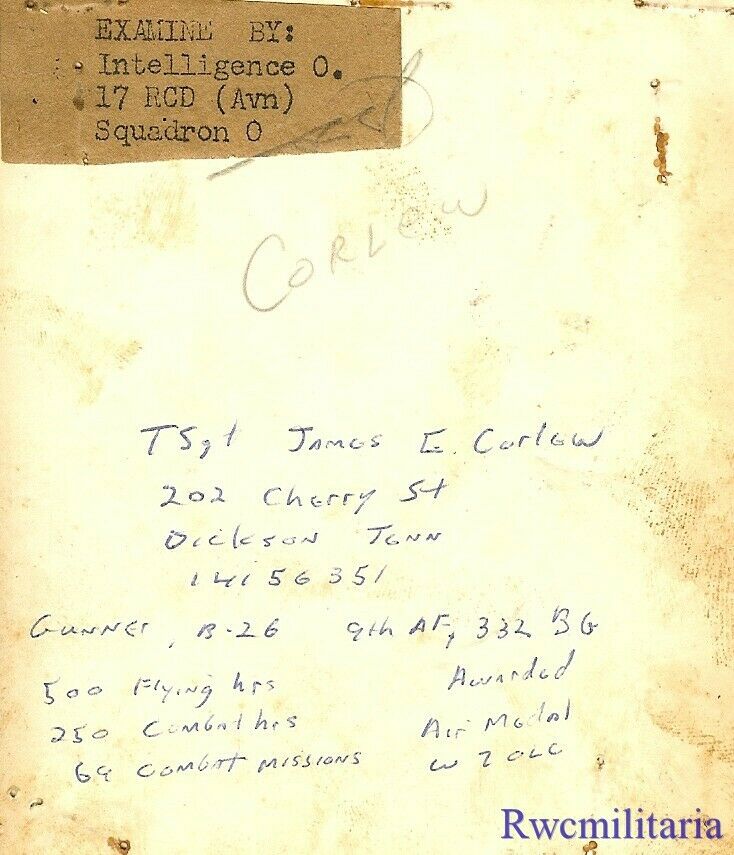 EXAMINE BY:
Intelligence O.
17 RCD (Avn)
Squadron O
CORLEW
TSgt James E. Corlew
202 Cherry St
Dickson Tenn
14156351
Gunner, B-26 9th AF, 332 BG
500 Flying hrs Awarded
250 Combat hrs Air Medal
69 Combat missions w 7 OLC
Rwcmilitaria